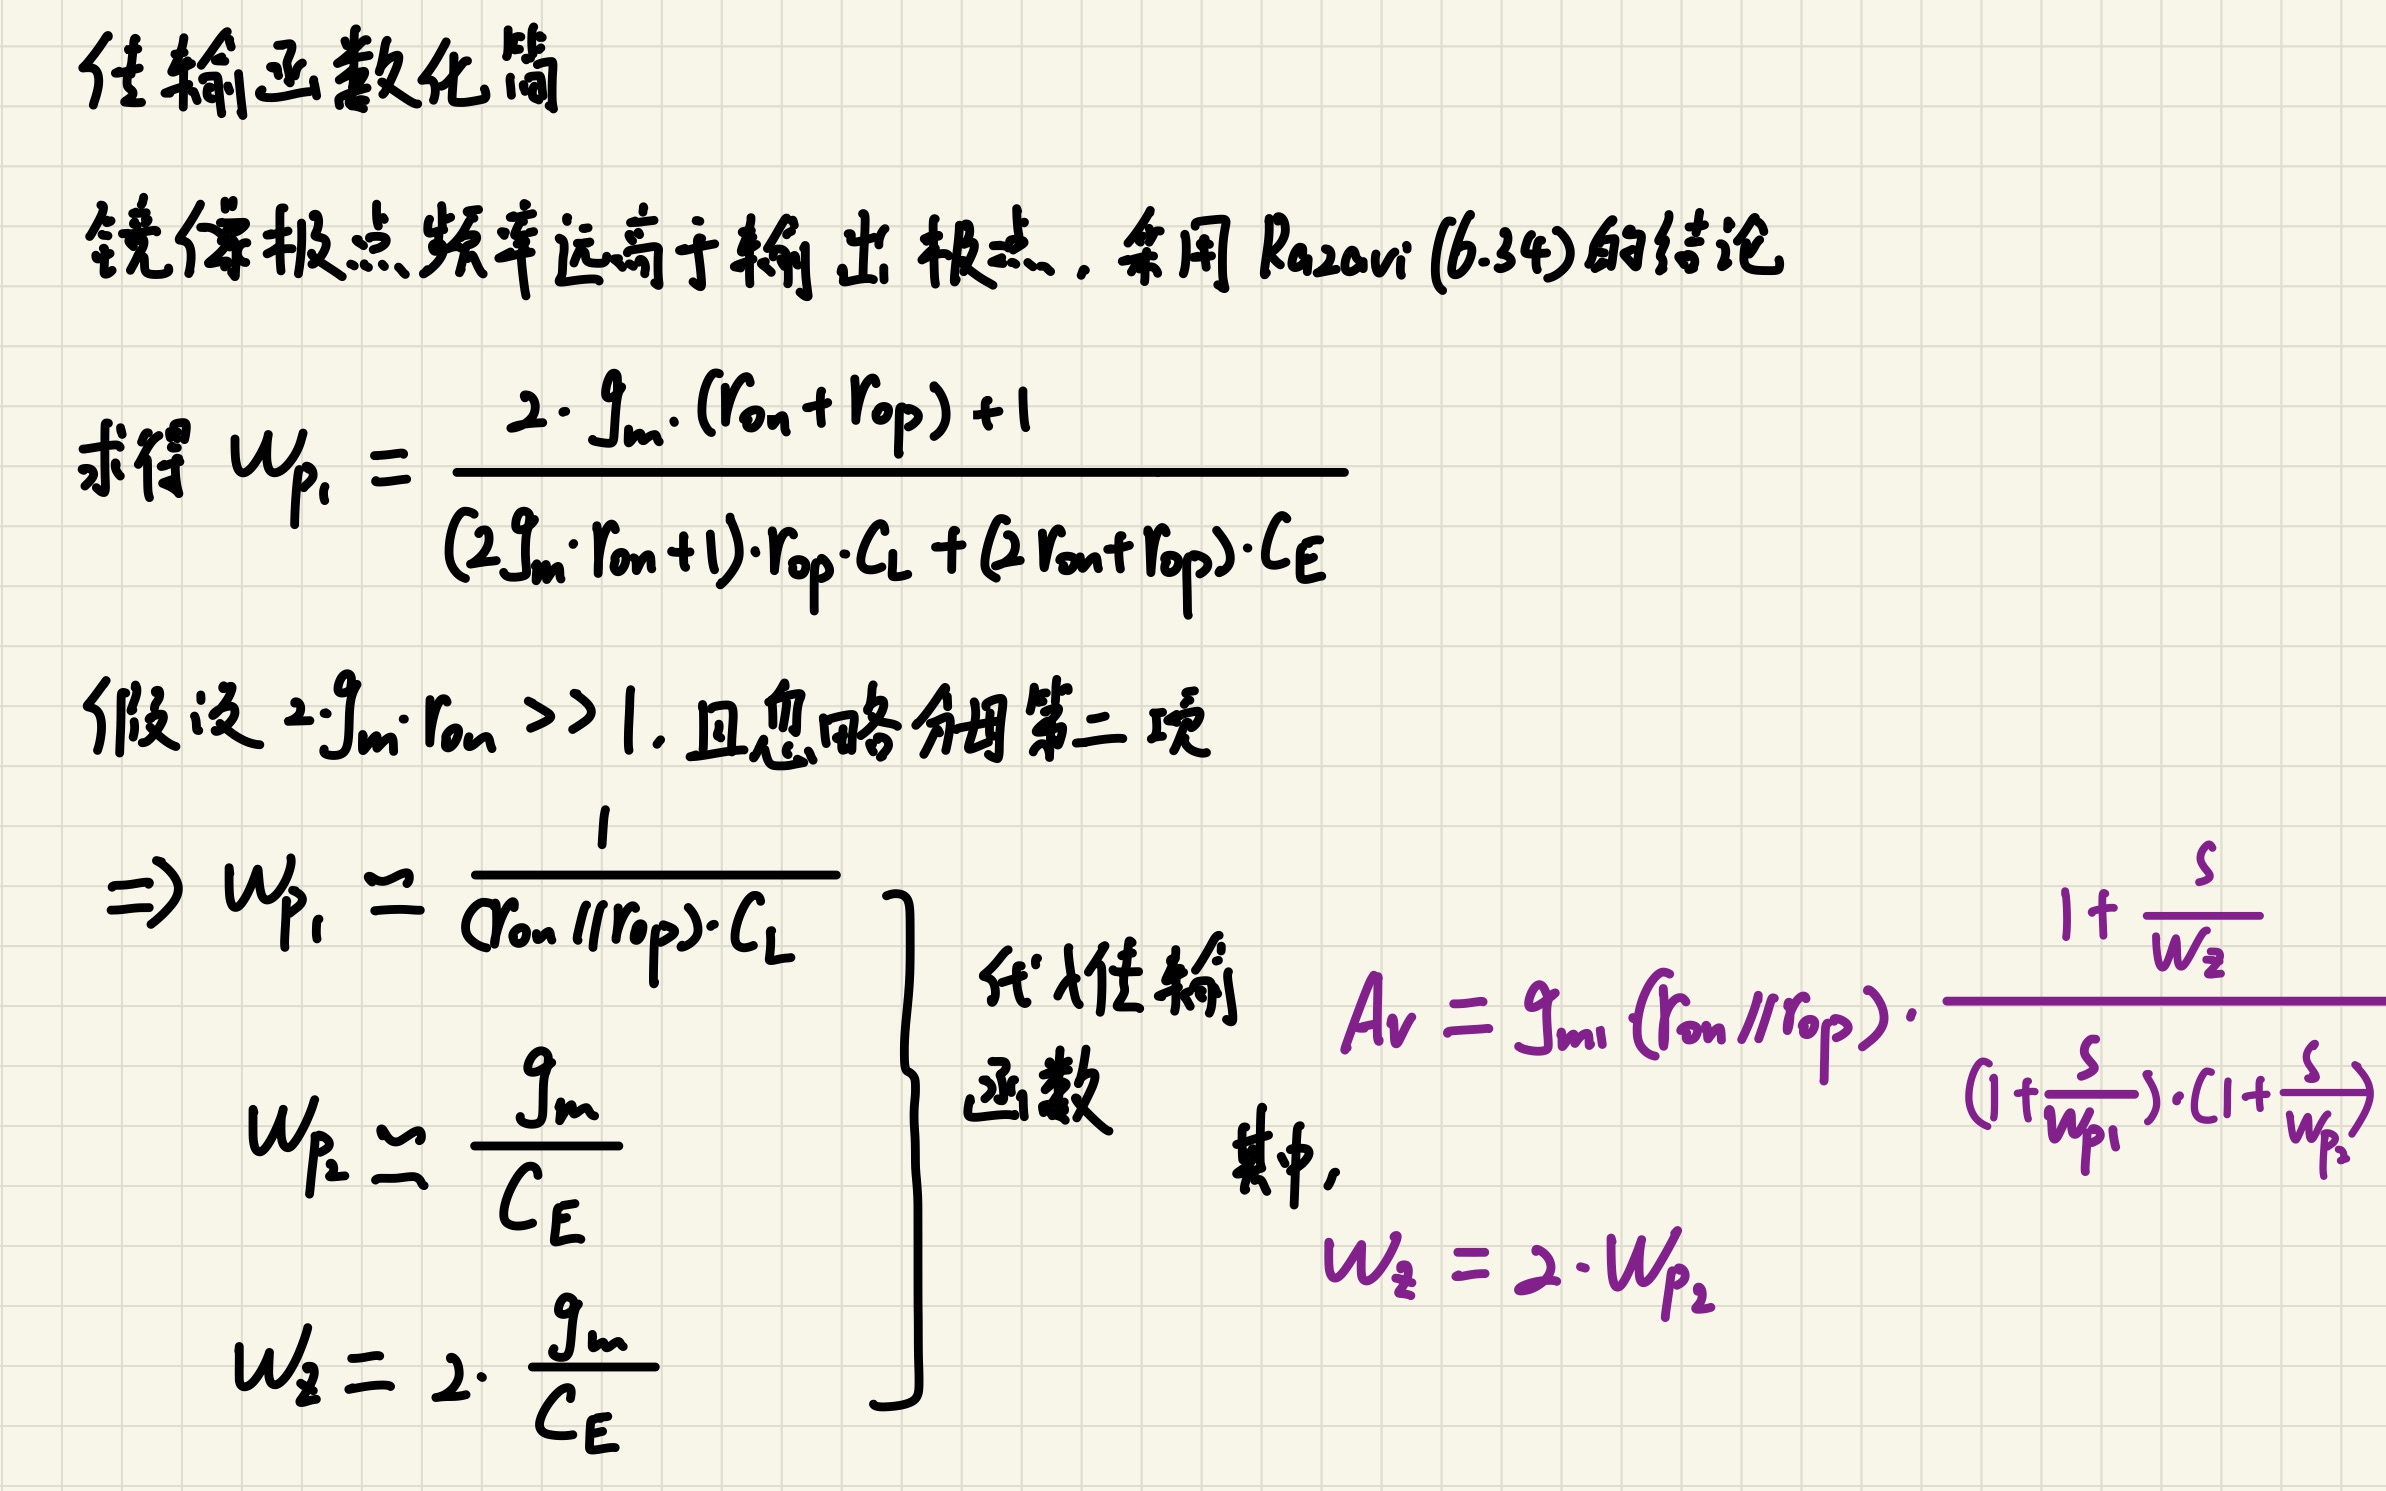 传输函数化简
镜像极点频率远高于输出极点，采用Razavi (6.34)的结论
求得 Wp₁ = (2·gm·(ron + rop) + 1) / ((2gm·ron+1)·rop·CL + (2ron+rop)·CE)
假设 2·gm·ron >> 1，且忽略分母第二项
⇒ Wp₁ ≃ 1 / ((ron // rop)·CL)
Wp₂ ≃ gm / CE
Wz = 2· gm / CE
代入传输
函数
Av = gm (ron // rop) · (1 + s/Wz) / ((1 + s/Wp₁)·(1 + s/Wp₂))
其中，
Wz = 2·Wp₂